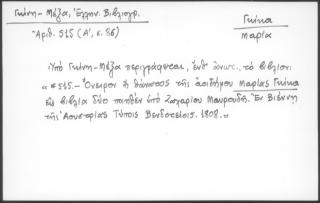 Γκίνη - Μέξα, Ἑλλην. Βιβλιογρ.
Ἀριθ. 515 (Α', σ. 86)
Γκίκα
Μαρία
Ὑπὸ Γκίνη-Μέξα περιγράφεται, ἔνθ' ἄνωτ., τὸ βιβλίον:
« *515. - Ὄνειρον ἢ θάνατος τῆς ἀοιδήμου Μαρίας Γκίκα
εἰς βιβλία δύο ποιηθὲν ὑπὸ Ζαχαρίου Μαυρουδῆ. Ἐν Βιέννῃ
τῆς Αουστρίας Τύποις Βενδοτείοις. 1808.»